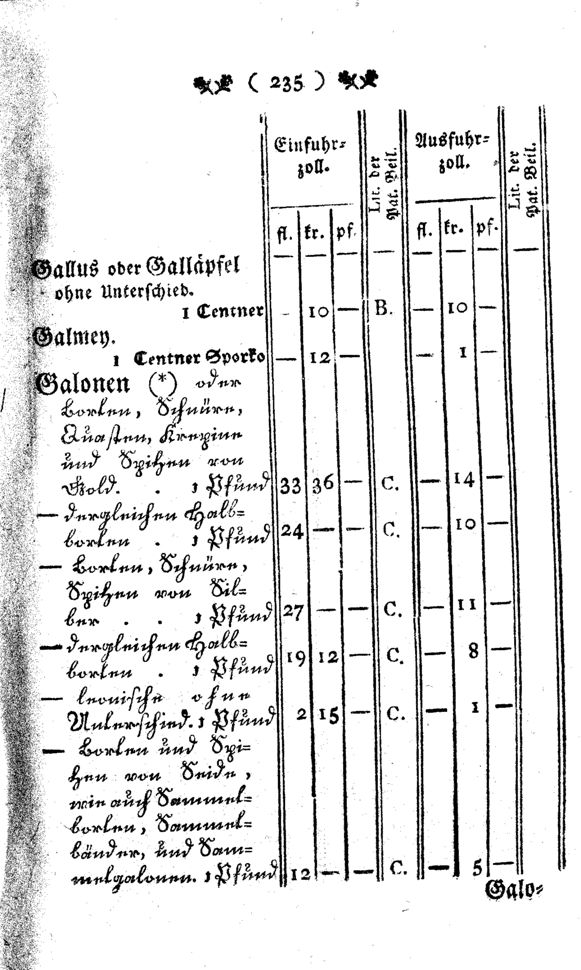 ( 235 )
Einfuhr=
zoll.
Lit. der
Pat. Beil.
Ausfuhr=
zoll.
Lit. der
Pat. Beil.
fl. kr. pf. fl. kr. pf.
— — — — — — — —
Gallus oder Galläpfel
ohne Unterschied.
1 Centner - 10 — B. — 10 —
Galmey.
1 Centner Sporko — 12 — — 1 —
Galonen (*) oder
Borten, Schnüre,
Quasten, Krepine
und Spitzen von
Gold. . 1 Pfund 33 36 — C. — 14 —
— dergleichen Halb=
borten . 1 Pfund 24 — — C. — 10 —
— Borten, Schnüre,
Spitzen von Sil=
ber . . 1 Pfund 27 — — C. — 11 —
— dergleichen Halb=
borten . 1 Pfund 19 12 — C. — 8 —
— leonische ohne
Unterschied. 1 Pfund 2 15 — C. — 1 —
— Borten und Spi=
tzen von Seide,
wie auch Sammet=
borten, Sammet=
bänder, und Sam=
metgalonen. 1 Pfund 12 — — C. — 5 —
Galo=